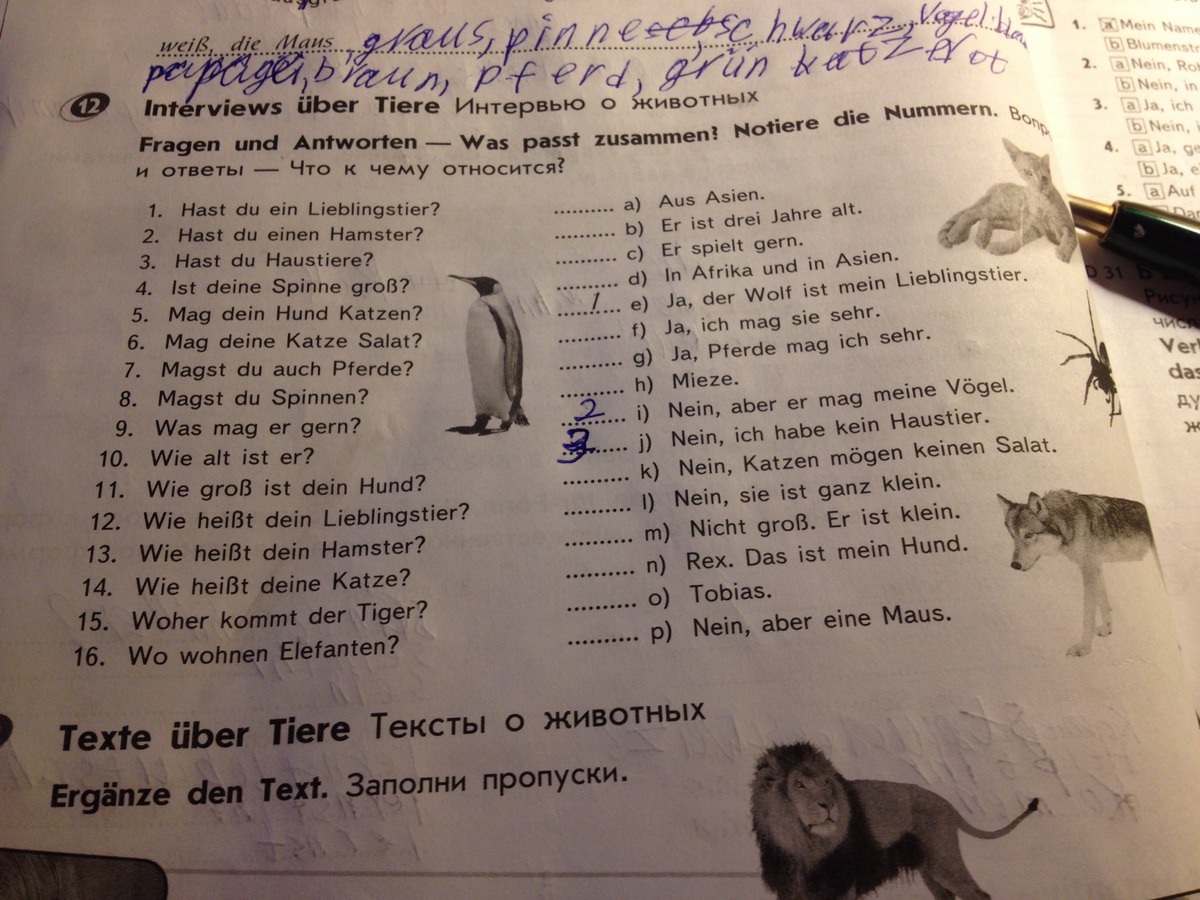 weiß, die Maus, graus, pinne schwarz, Vogel: blau
papagei, braun, pferd, grün katze rot
12 Interviews über Tiere Интервью о животных
Fragen und Antworten — Was passt zusammen? Notiere die Nummern.
и ответы — Что к чему относится?
1. Hast du ein Lieblingstier?
2. Hast du einen Hamster?
3. Hast du Haustiere?
4. Ist deine Spinne groß?
5. Mag dein Hund Katzen?
6. Mag deine Katze Salat?
7. Magst du auch Pferde?
8. Magst du Spinnen?
9. Was mag er gern?
10. Wie alt ist er?
11. Wie groß ist dein Hund?
12. Wie heißt dein Lieblingstier?
13. Wie heißt dein Hamster?
14. Wie heißt deine Katze?
15. Woher kommt der Tiger?
16. Wo wohnen Elefanten?
.......... a) Aus Asien.
.......... b) Er ist drei Jahre alt.
.......... c) Er spielt gern.
.......... d) In Afrika und in Asien.
1 e) Ja, der Wolf ist mein Lieblingstier.
.......... f) Ja, ich mag sie sehr.
.......... g) Ja, Pferde mag ich sehr.
.......... h) Mieze.
2 i) Nein, aber er mag meine Vögel.
3 j) Nein, ich habe kein Haustier.
.......... k) Nein, Katzen mögen keinen Salat.
.......... l) Nein, sie ist ganz klein.
.......... m) Nicht groß. Er ist klein.
.......... n) Rex. Das ist mein Hund.
.......... o) Tobias.
.......... p) Nein, aber eine Maus.
Texte über Tiere Тексты о животных
Ergänze den Text. Заполни пропуски.
1. a Mein Name
b Blumenstr
2. a Nein, Rot
b Nein, in
3. a Ja, ich
b Nein, i
4. a Ja, ge
b Ja, e
5. a Auf
31
Рису
чис
Ver
das
ду
ж